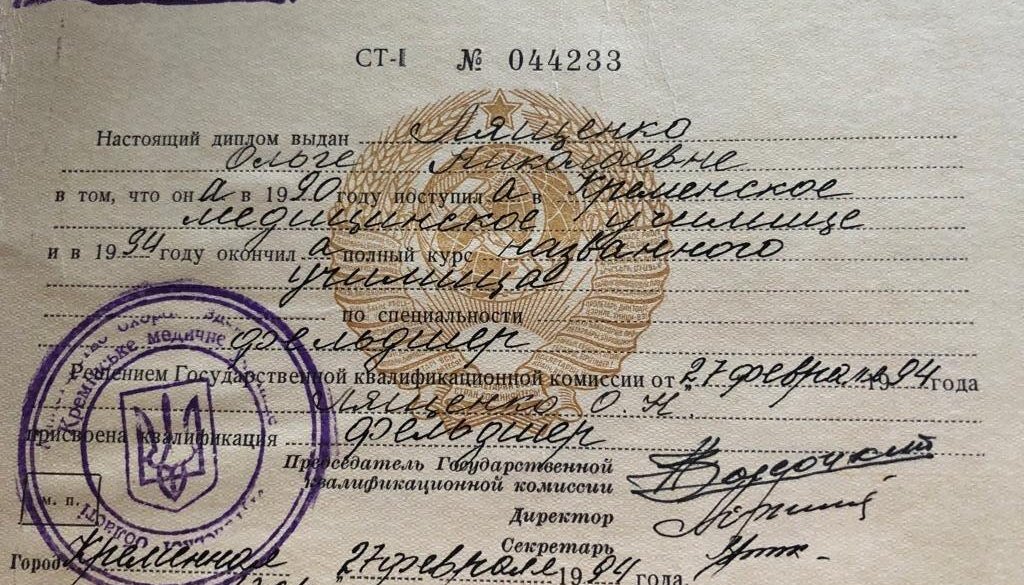 СТ-I № 044233
Настоящий диплом выдан Лященко
Ольге Николаевне
в том, что он а в 1990 году поступил а в Кременское
медицинское училище
и в 1994 году окончил а полный курс названного
училища
по специальности
фельдшер
Решением Государственной квалификационной комиссии от 27 февраля 1994 года
Лященко О. Н.
присвоена квалификация фельдшер
Председатель Государственной
квалификационной комиссии
Директор
Секретарь
м. п.
Город Кременная 27 февраля 1994 года.
Кремінське медичне
області